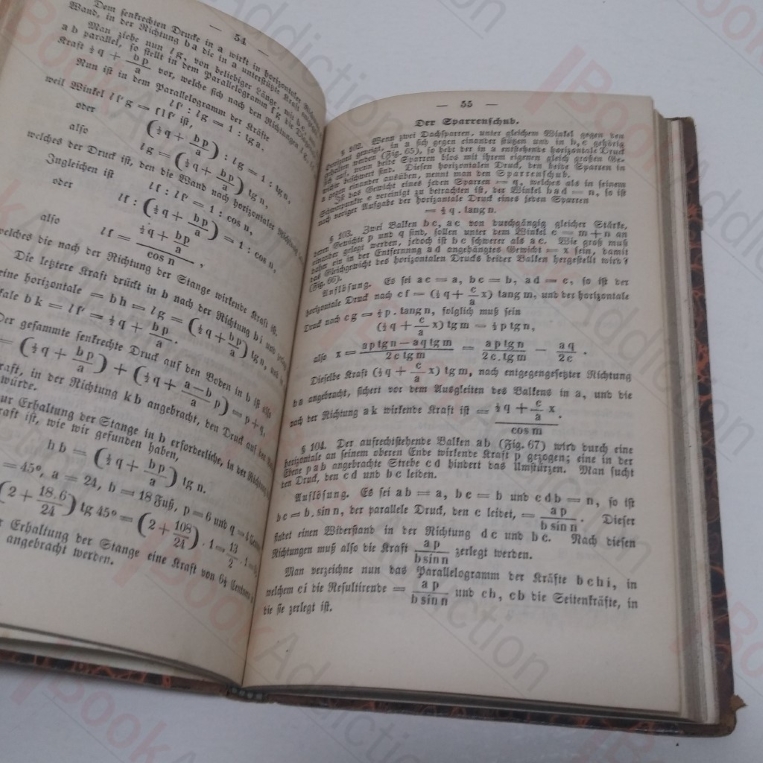 — 54 —
Dem senkrechten Drucke in a wirkt in horizontaler
Wand, in der Richtung b a die in a unterstützte Kraft
Man ziehe nun l g, von beliebiger Länge, mit b c,
a b parallel, so stellt in dem Parallelogramm f g die
Kraft ½ q + bp/a vor, welche sich nach den Richtungen
Nun ist in dem Parallelogramm der Kräfte
weil Winkel
oder (½ q + bp/a) : l g = 1 : tg n,
also l g = (½ q + bp/a) tg n,
welches der Druck ist, den die Wand nach horizontaler Richtung
Ingleichen ist l f : = 1 : cos n,
oder l f : (½ q + bp/a) = 1 : cos n.
also l f = ½ q + bp/a / cos n,
welches die nach der Richtung der Stange wirkende Kraft ist.
Die letztere Kraft drückt in b nach der Richtung b i und
eine horizontale = b h = l g = (½ q + bp/a) tg n, und
b k = = ½ q + bp/a.
Der gesammte senkrechte Druck auf den Boden in b ist also
+ bp/a) + (½ q + a—b/a p) = p + q,
kraft, in der Richtung k b angebracht, den Druck auf den
würde.
zur Erhaltung der Stange in b erforderliche, in der Richtung
kraft ist, wie wir gefunden haben,
h b = (½ q + bp/a) tg n.
= 45°, a = 24, b = 18 Fuß, p = 6 und q = 4
(2 + 18.6/24) tg 45° = (2 + 108/24) . 1 = 13/2 . 1
Erhaltung der Stange eine Kraft von 6½ Centnern
angebracht werden.
— 55 —
Der Sparrenschub.
§ 102. Wenn zwei Dachsparren, unter gleichem Winkel gegen den
Horizont geneigt, in a sich gegen einander stützen und in b, c gehörig
gehalten werden (Fig. 65), so hebt der in a entstehende horizontale Druck
sich auf, wenn beide Sparren blos mit ihrem eigenen gleich großen Ge-
wicht beschwert sind. Diesen horizontalen Druck, den beide Sparren in
a gegen einander ausüben, nennt man den Sparrenschub.
Ist das Gewicht eines jeden Sparren = q, welches als in seinem
Schwerpunkte e vereinigt zu betrachten ist, der Winkel b a d = n, so ist
nach voriger Aufgabe der horizontale Druck eines jeden Sparren
= ½ q . tang n.
§ 103. Zwei Balken b c, a c von durchgängig gleicher Stärke,
deren Gewichte p und q sind, sollen unter dem Winkel c = m + n an
einander gelegt werden, jedoch ist b c schwerer als a c. Wie groß muß
daher ein in der Entfernung a d angehängtes Gewicht = x sein, damit
das Gleichgewicht des horizontalen Drucks beider Balken hergestellt wird?
(Fig. 66).
Auflösung. Es sei a c = a, b c = b, a d = c, so ist der
horizontale Druck nach c f = (½ q + c/a x) tang m, und der horizontale
Druck nach c g = ½ p . tang n, folglich muß sein
(½ q + c/a x) tg m = ½ p tg n,
also x = a p tg n — a q tg m / 2 c tg m = a p tg n / 2 c . tg m — a q / 2 c .
Dieselbe Kraft (½ q + c/a x) tg m, nach entgegengesetzter Richtung
b a angebracht, sichert vor dem Ausgleiten des Balkens in a, und die
nach der Richtung a k wirkende Kraft ist = ½ q + c/a x / cos m .
§ 104. Der aufrechtstehende Balken a b (Fig. 67) wird durch eine
horizontale an seinem oberen Ende wirkende Kraft p gezogen; eine in der
Ebene p a b angebrachte Strebe c d hindert das Umstürzen. Man sucht
den Druck, den c d und b c leiden.
Auflösung. Es sei a b = a, b c = b und c d b = n, so ist
b e = b . sin n, der parallele Druck, den c leidet, = a p / b sin n . Dieser
findet einen Widerstand in der Richtung d c und b c. Nach diesen
Richtungen muß also die Kraft a p / b sin n zerlegt werden.
Man verzeichne nun das Parallelogramm der Kräfte b c h i, in
welchem c i die Resultirende = a p / b sin n und c h, c b die Seitenkräfte, in
die sie zerlegt ist.
Book Addiction